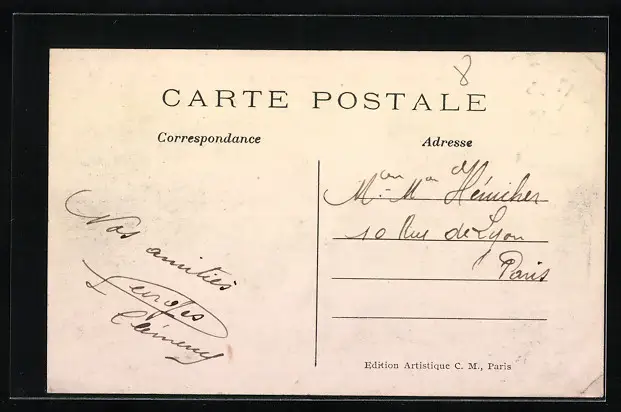 8
CARTE POSTALE
Correspondance
Adresse
10 Rue de Lyon
Paris
Nos amitiés
Georges
Edition Artistique C. M., Paris